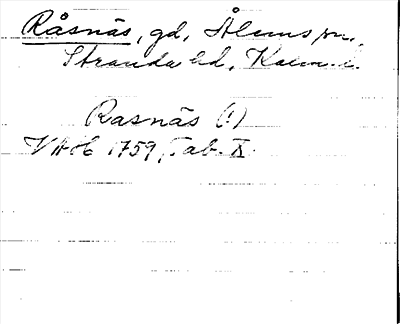 Råsnäs, gd, Ålems sn,
Stranda hd, Kalm. l.
Rasnäs (!)
VAH 1759, Tab. X.